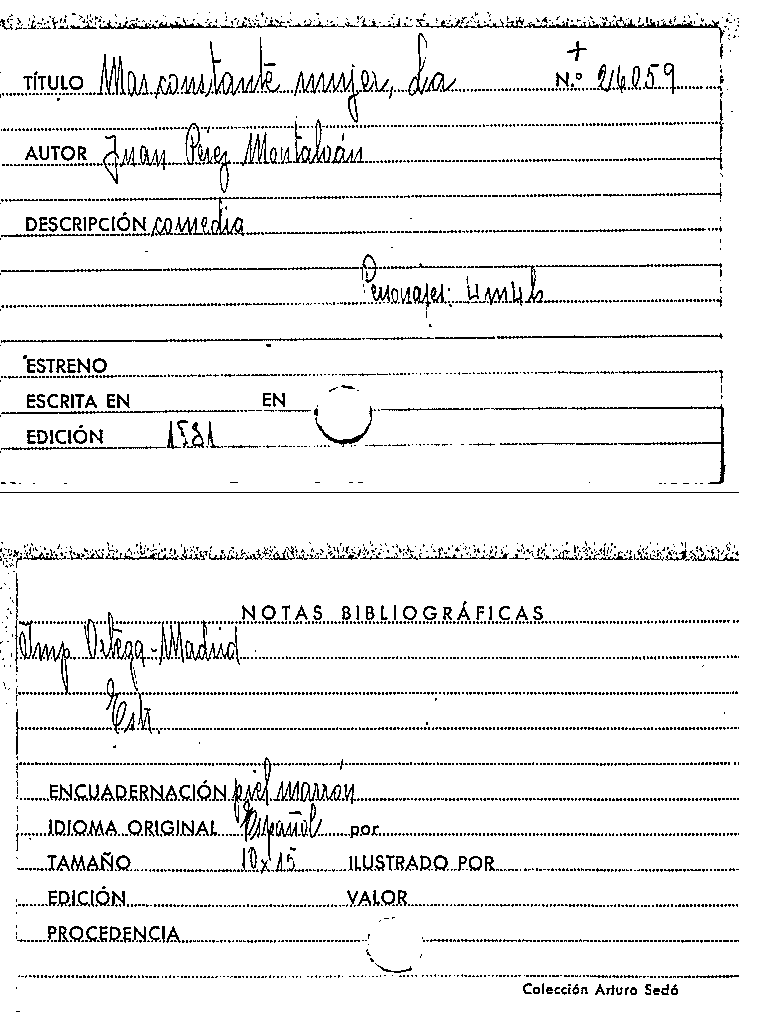 TÍTULO Mas constante mujer, La N.º 24059
+
AUTOR Juan Pérez Montalván
DESCRIPCIÓN comedia
Personajes: 4m4h
ESTRENO
ESCRITA EN EN
EDICIÓN
NOTAS BIBLIOGRÁFICAS
Imp Ortega-Madrid
ENCUADERNACIÓN piel marrón
IDIOMA ORIGINAL Español por
TAMAÑO 10x15 ILUSTRADO POR
EDICIÓN VALOR
PROCEDENCIA
Colección Arturo Sedó